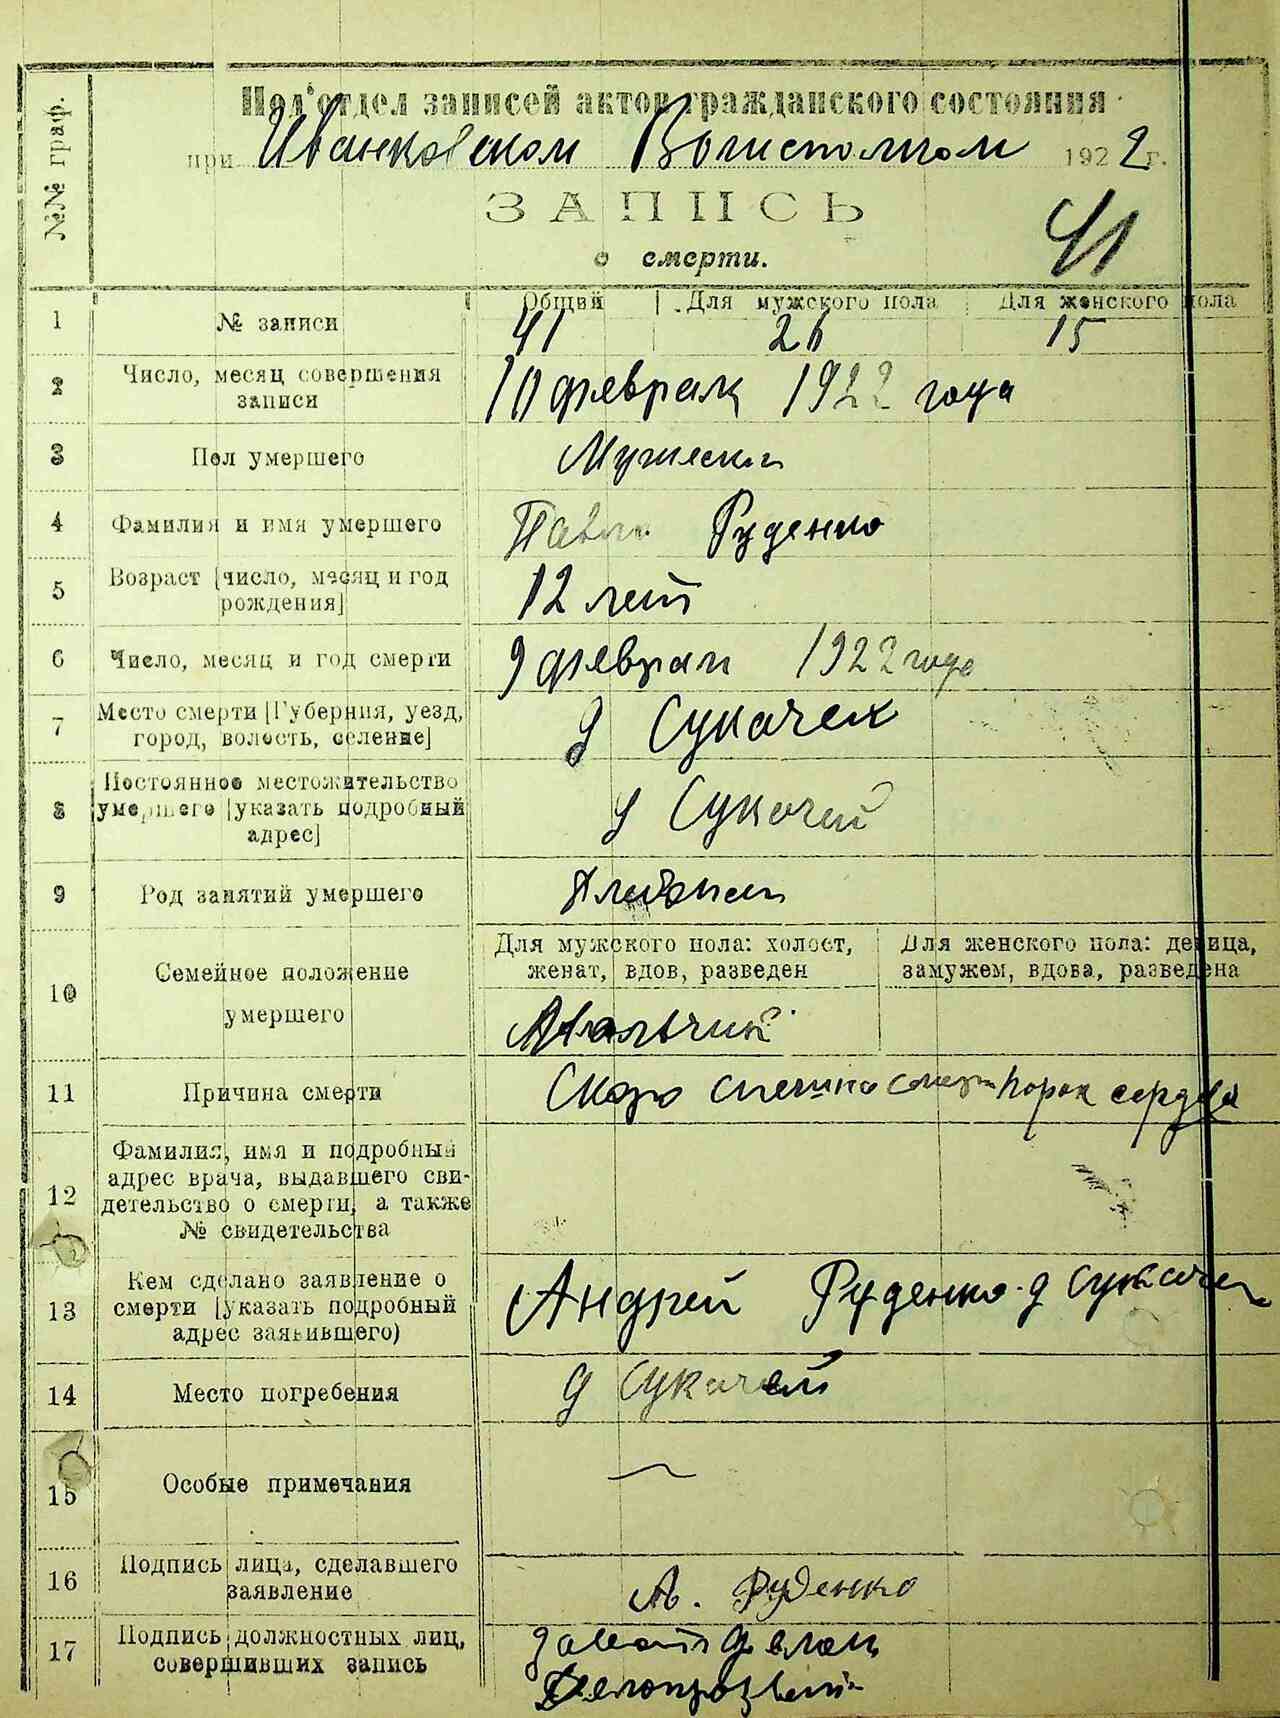 №№ граф.
Под'отдел записей актов гражданского состояния
при Иванковском Волисполком 1922 г.
ЗАПИСЬ
о смерти.
41
Общий Для мужского пола Для женского пола
1 № записи 41 26 15
2 Число, месяц совершения
записи
10 февраля 1922 года
3 Пол умершего Мужеский
4 Фамилия и имя умершего Павло Руденко
5 Возраст [число, месяц и год
рождения]
12 лет
6 Число, месяц и год смерти 9 феврал 1922 года
7 Место смерти [Губерния, уезд,
город, волость, селение]
д Сукачех
8 Постоянное местожительство
умершего [указать подробный
адрес]
д Сукачей
9 Род занятий умершего
10 Семейное положение
умершего
Для мужского пола: холост,
женат, вдов, разведен
Для женского пола: девица,
замужем, вдова, разведена
Мальчик
11 Причина смерти Скоро порок сердца
12 Фамилия, имя и подробный
адрес врача, выдавшего сви-
детельство о смерти, а также
№ свидетельства
13 Кем сделано заявление о
смерти [указать подробный
адрес заявившего)
Андрей Руденко д Сукачей
14 Место погребения д Сукачей
15 Особые примечания
16 Подпись лица, сделавшего
заявление
А. Руденко
17 Подпись должностных лиц,
совершивших запись